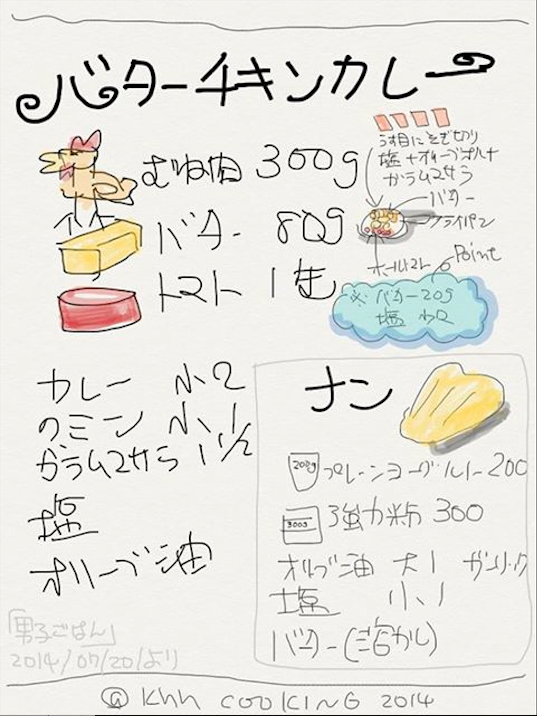 バターチキンカレー
むね肉 300g
バター 80g
トマト 1缶
うす目にそぎ切り
塩+オリーブオイル+
ガラムマサラ
バター
フライパン
ホールトマト
Point
※ バター20g
塩
カレー 小2
クミン 小1
ガラムマサラ 1 1/2
塩
オリーブ油
ナン
200g プレーンヨーグルト 200
300g 強力粉 300
オリーブ油 大1 ガーリック
塩 小1
バター(溶かし)
「男子ごはん」
2014/07/20より
@ khh COOKING 2014